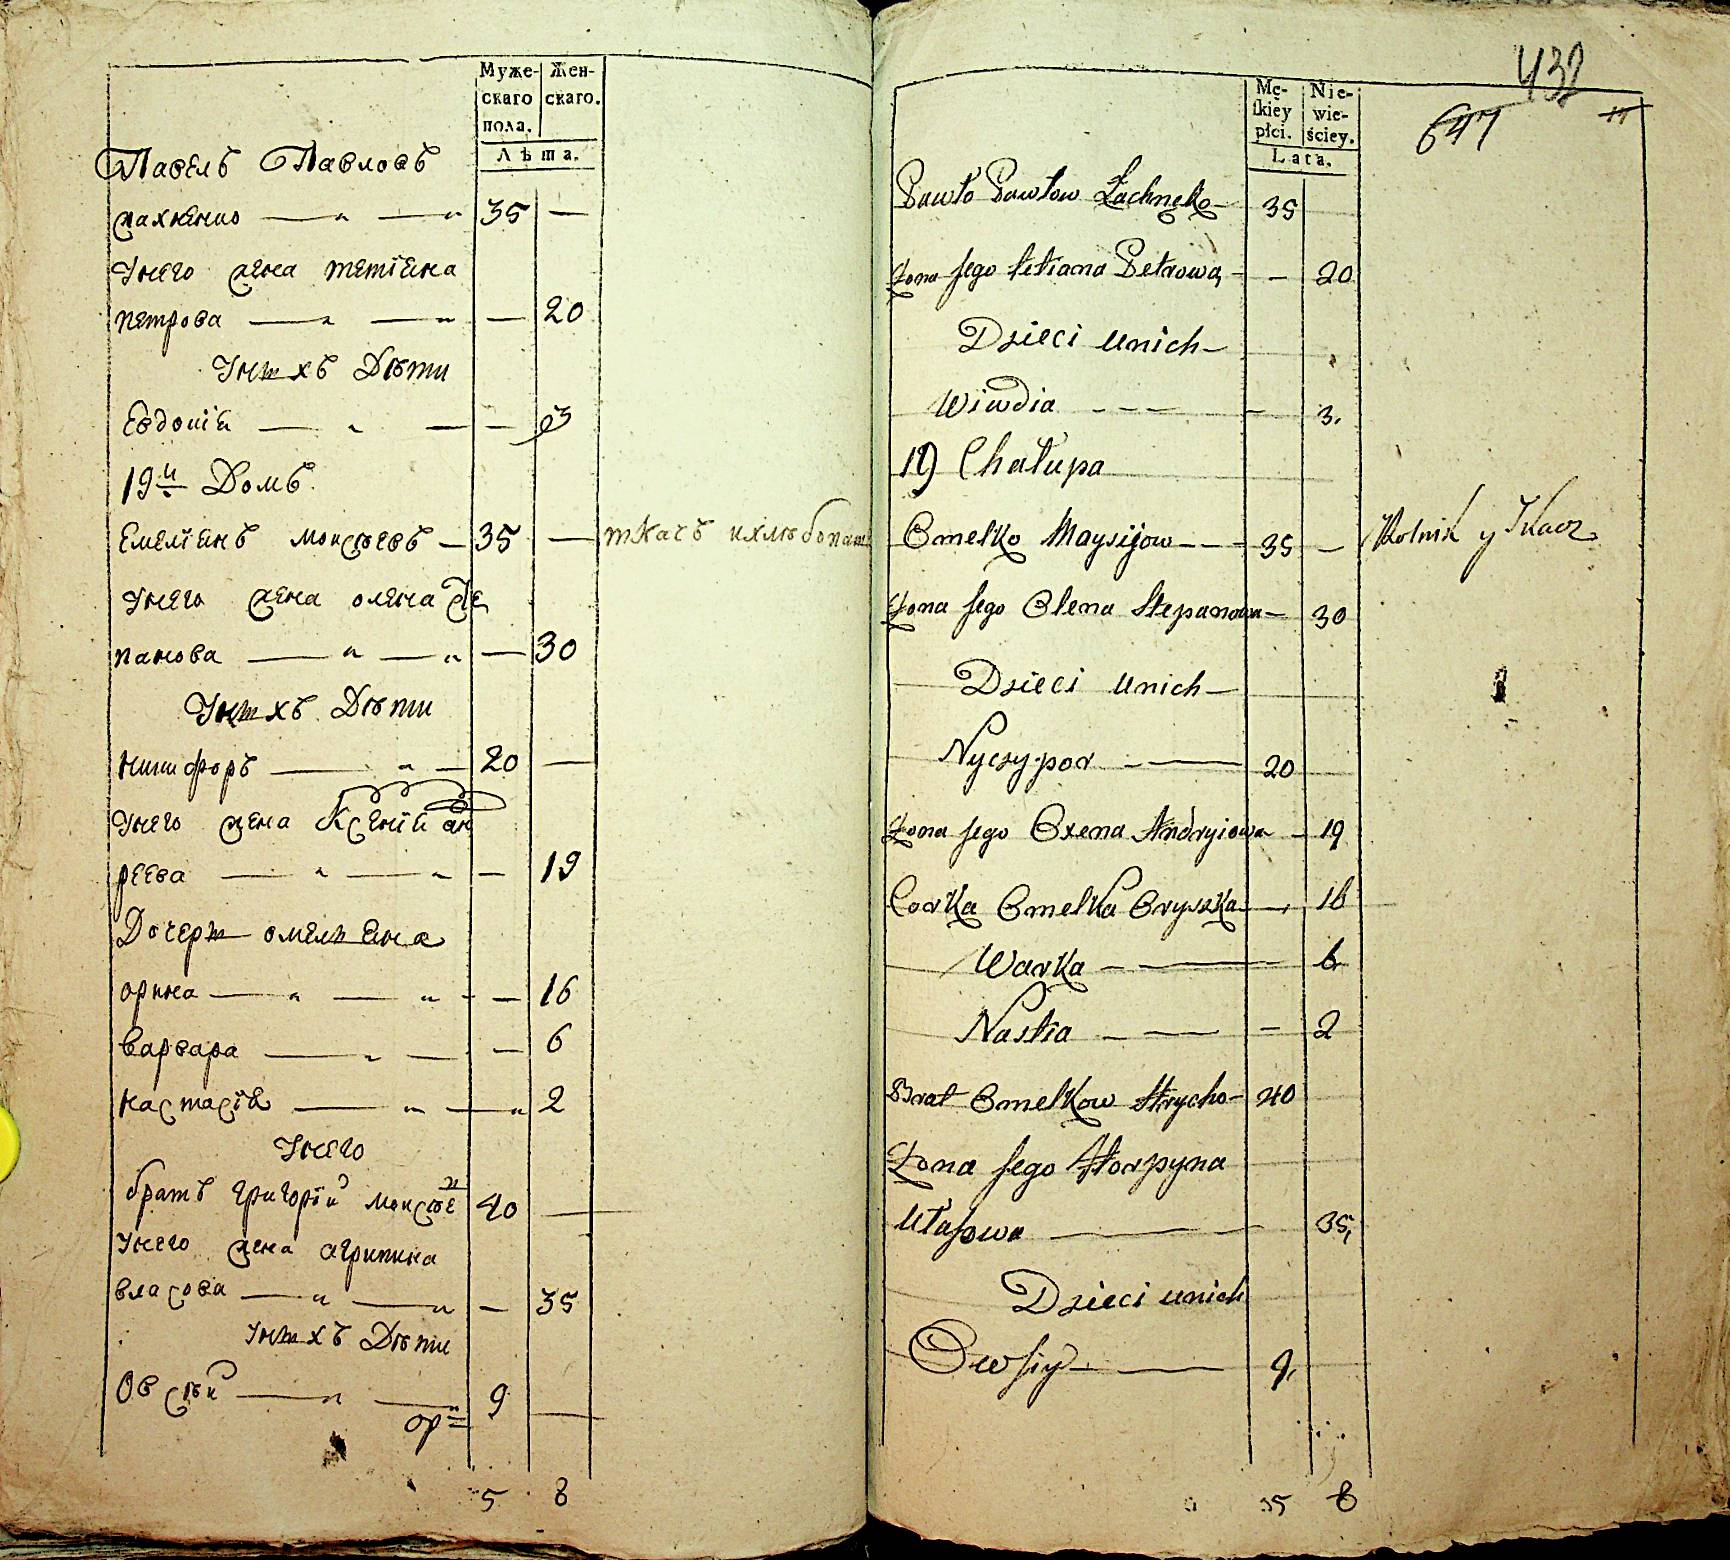 Муже-
скаго
пола.
Жен-
скаго.
Лѣта.
Павелъ Павловъ
лахненко — „ — „ 35 —
Унего жена тетіана
петрова — „ — „ — 20
Унихъ Дѣти
Евдокія — „ — — 3
19й Домъ.
Емеліянъ моисѣевъ — 35 — ткачъ ихлѣбопаш
Унего жена олена сте
панова — „ — „ — 30
Унихъ Дѣти
никифоръ — „ — 20 —
Унего жена Ксенія ан
реева — „ — „ — 19
Дочери омеляна
орина — „ — „ — 16
варвара — „ — — 6
настасія — „ — „ 2
Унего
братъ григорій моисѣе 40 —
Унего жена агрипина
власова — „ — „ — 35
Унихъ Дѣти
Овсѣй — „ — „ 9 —
ор=
5 8
432
647
Mę-
ſkiey
płci.
Nie-
wie-
ściey.
Lata.
Pawło Pawłow Łachnęko — 35
Żona Jego Tetiana Petrowa, — — 20
Dzieci unich —
Wiwdia - - - — 3.
19) Chałupa
Omelko Maysijow - - - 35 — Rolnik y Tkacz
Żona Jego Olena Stepanowa — 30
Dzieci unich —
Nyczypor - — 20
Żona Jego Oxena Andryiowa — 19
Corka Omelka Oryszka — 16
Warka - — 6
Nastia - — — 2
Brat Omelkow Hrycho — 40
Żona Jego Horpyna
Ułasowa — — 35,
Dzieci unich
Owsiy — — 9,
5 8